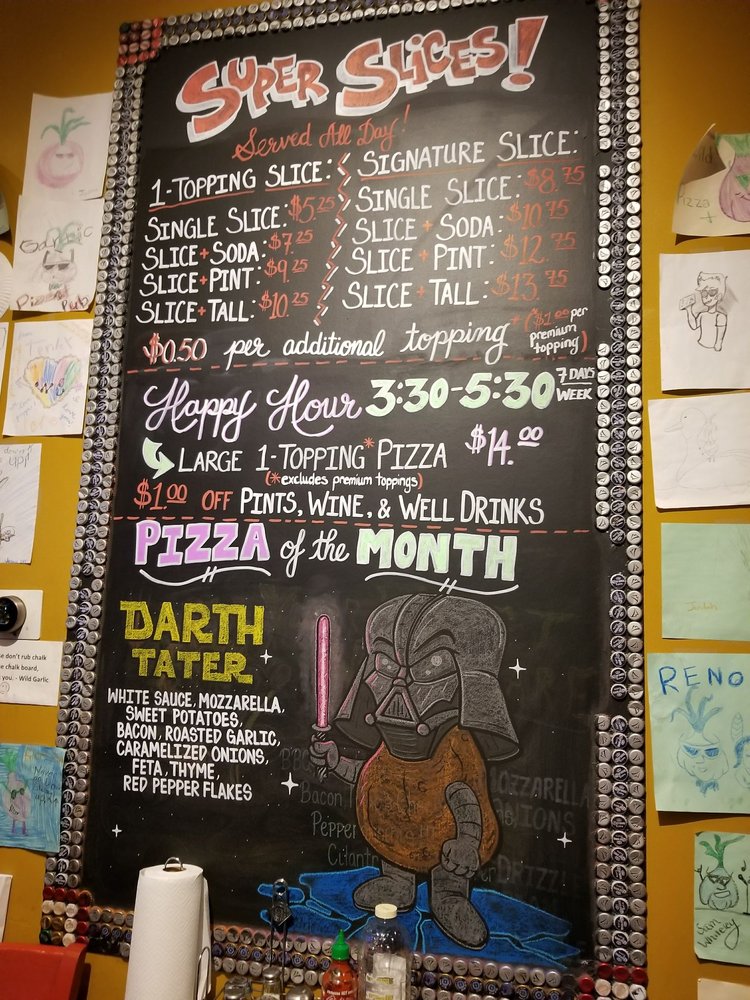 SUPER SLICES!
Served All Day!
1-TOPPING SLICE:
SINGLE SLICE: $5.25
SLICE + SODA: $7.25
SLICE + PINT: $9.25
SLICE + TALL: $10.25
SIGNATURE SLICE:
SINGLE SLICE: $8.75
SLICE + SODA: $10.75
SLICE + PINT: $12.75
SLICE + TALL: $13.75
$0.50 per additional topping *($1.00 per
premium
topping)
Happy Hour 3:30-5:30 7 DAYS
WEEK
LARGE 1-TOPPING* PIZZA $14.00
(*excludes premium toppings)
$1.00 OFF PINTS, WINE, & WELL DRINKS
PIZZA of the MONTH
DARTH
TATER
WHITE SAUCE, MOZZARELLA,
SWEET POTATOES,
BACON, ROASTED GARLIC,
CARAMELIZED ONIONS,
FETA, THYME,
RED PEPPER FLAKES
MOZZARELLA
Bacon
IONS
Pepper
DRIZZLE
Garlic
Pizza Pub
don't rub chalk
chalk board,
you. - Wild Garlic
Pizza
+
RENO